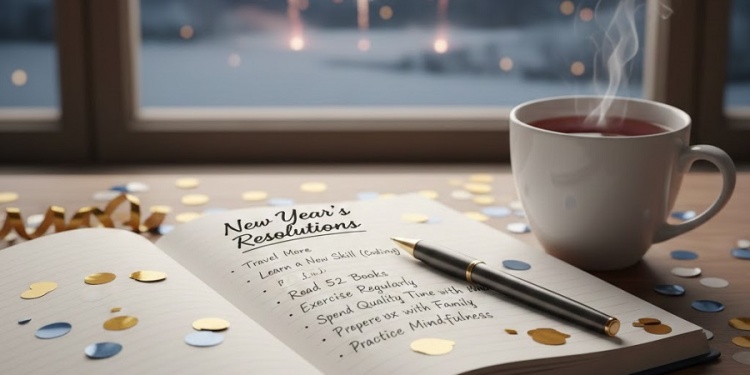 New Year's
Resolutions
• Travel More
• Learn a New Skill (Coding)
• Read 52 Books
• Exercise Regularly
• Spend Quality Time with
• with Family,
• Practice Mindfulness